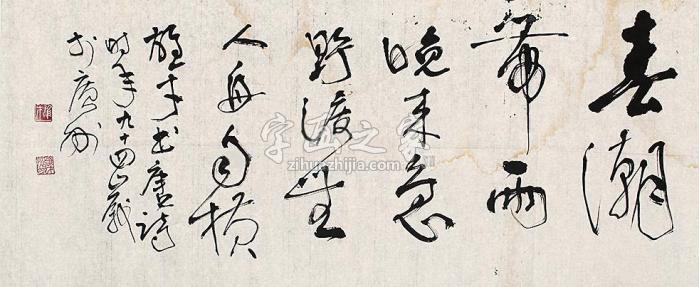 春潮
帶雨
晚来急
野渡無
人舟自横
雄才书唐诗
时年九十四歲
於广州
字魂之家
zihunzhijia.com